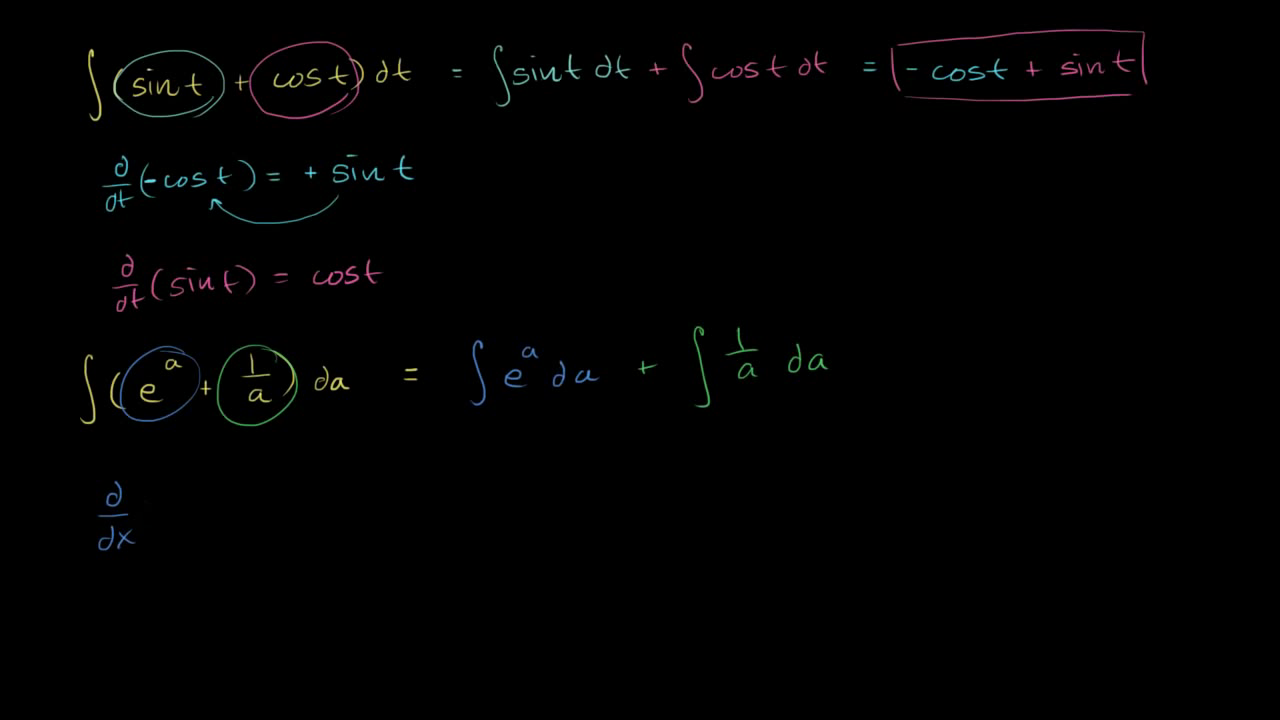 ∫(sin t + cos t) dt = ∫sin t dt + ∫cos t dt = - cos t + sin t
d/dt (-cos t) = + sin t
d/dt (sin t) = cos t
∫(e^a + 1/a) da = ∫e^a da + ∫1/a da
d/dx